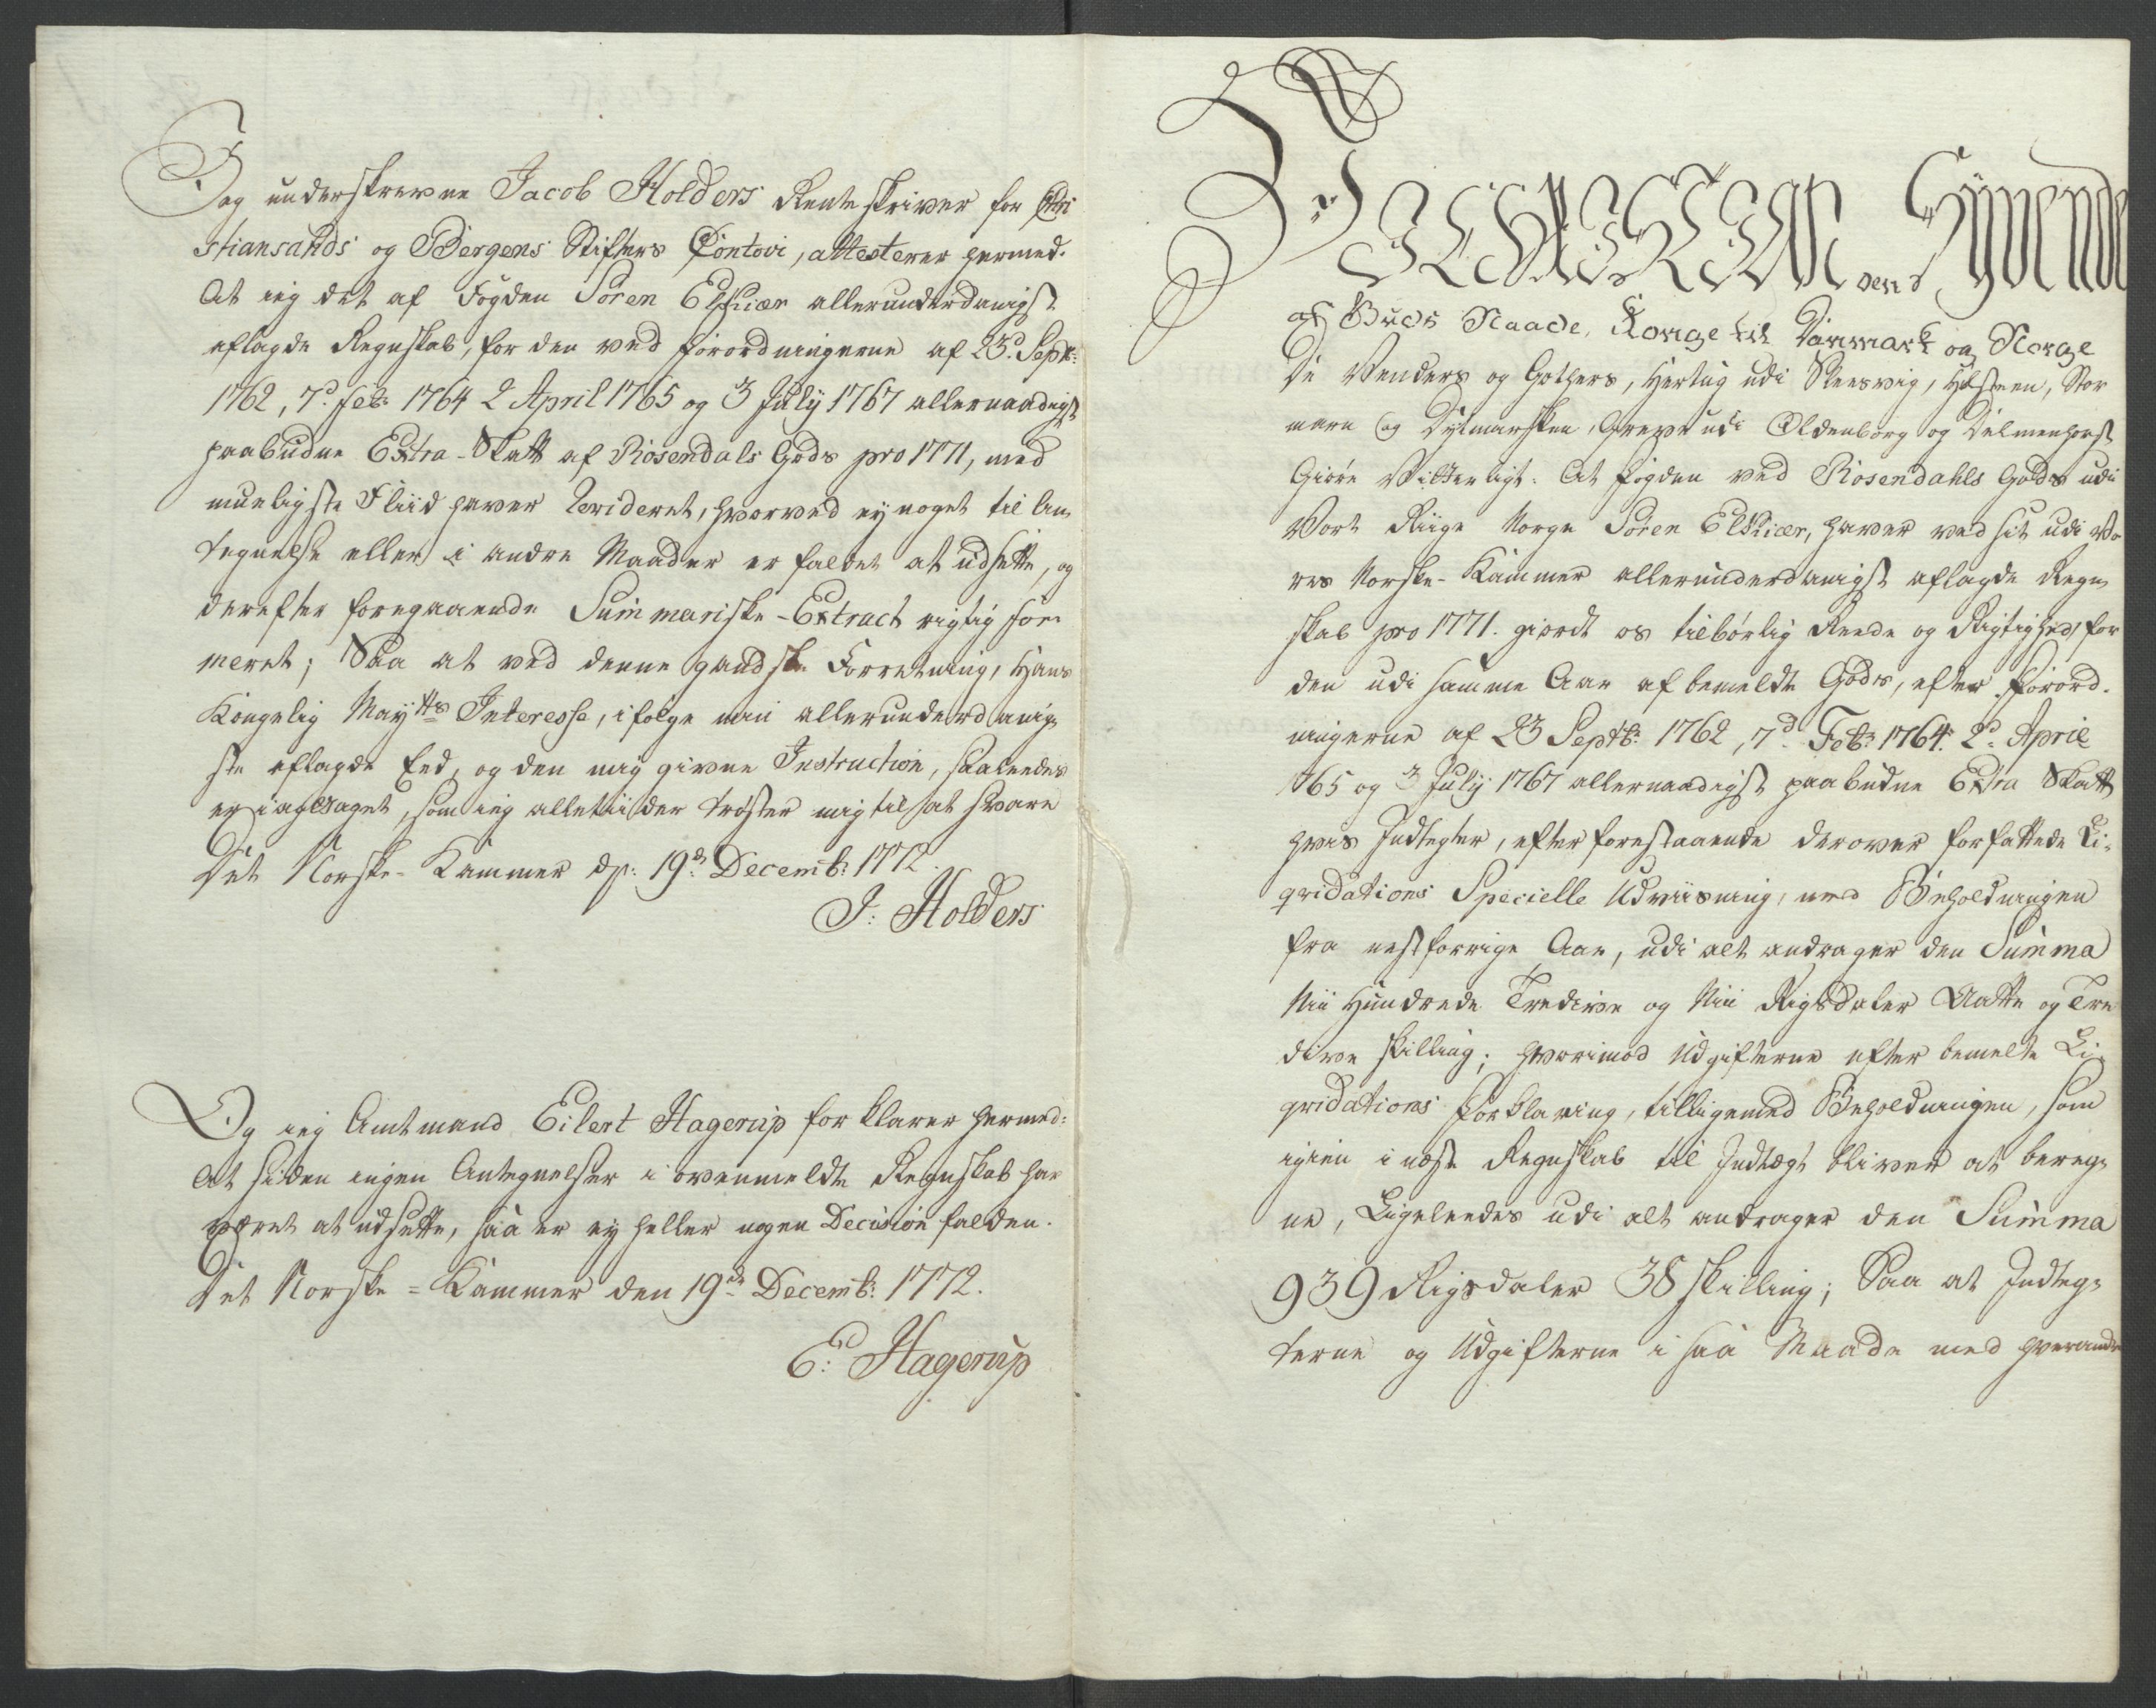 Jeg underskrevne Jacob Holders Renteskriver for Chri
stiansands og Bergens Stifters Contoir, attesterer hermed.
At ieg det af Fogden Sören Elskiær allerunderdanigst
aflagde Regnskab, for den ved Forordningerne af 23d Septr:
1762, 7d Feb: 1764 2 April 1765 og 3 July 1767 allernaadigst
paabudne Extra-Skatt af Rosendals Gods pro 1771, med
mueligste Fliid haver Revideret, hvorved ey noget til An
tegnelse eller i andre Maader er faldet at udsette, og
derefter foregaaende Summariske-Extract rigtig for
meret; Saa at ved denne gandske Forretning, Hans
Kongelig Maytts Interesse, i følge min allerunderdanig
ste aflagde Eed, og den mig givne Instruction, saaledes
er iagttaget, som ieg alletiider trøster mig til at svare
Det Norske-Kammer d: 19d Decemb: 1772.
J: Holders
Og ieg Amtmand Eilert Hagerup forklarer hermed:
At siden ingen Antegnelser i ovenmeldte Regnskab har
været at udsette, saa er ey heller nogen Decision falden.
Det Norske=Kammer den 19de Decemb: 1772.
E: Hagerup
CHRISTIAN den Syvende
af Guds Naade, Konge til Danmark og Norge
De Venders og Gothers, Hertug udi Slesvig, Holsteen, Stor
marn og Dytmarsken, Greve udi Oldenborg og Delmenhorst
Giøre Vitterligt: At Fogden ved Rosendahls Gods udi
Vort Riige Norge Sören Elskiær, haver ved sit udi Vo
res Norske-Kammer allerunderdanigst aflagde Regn
skab pro 1771. giordt os tilbørlig Reede og Rigtighed, for
den udi samme Aar af bemeldte Gods, efter Forord-
ningerne af 23 Septb: 1762, 7d Feb: 1764. 2d April
1765 og 3 July 1767 allernaadigst paabudne Extra Skatt
hvis Indtegter, efter forestaaende derover forfattede Li-
qvidations Specielle Udviisning, med Beholdningen
fra nestforrige Aar, udi alt andrager den Summa
Nii Hundrede Tredive og Nii Rigsdaler Aatte og Tre
dive skilling; hvorimod Udgifterne efter bemelte Li-
qvidations Forklaring, tilligemed Beholdningen, som
igien i næste Regnskab til Indtægt bliver at bereg-
ne, Ligeleedes udi alt andrager den Summa
939 Rigsdaler 38 skilling; Saa at Indteg-
terne og Udgifterne i saa Maade med hverandre